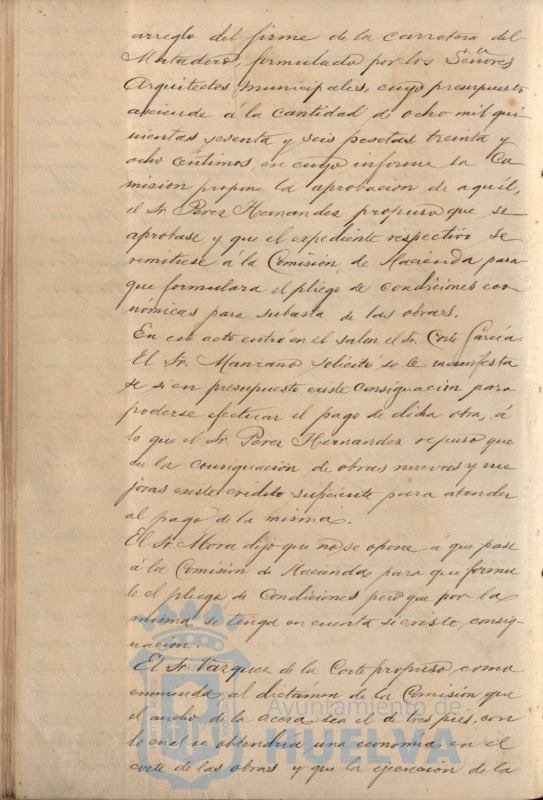 arreglo del firme de la carretera del
Matadero, formulado por los Señores
Arquitectos municipales, cuyo presupuesto
asciende á la cantidad de ocho mil qui
nientas sesenta y seis pesetas treinta y
ocho céntimos, en cuyo informe la Co
mision propone la aprobacion de aquél,
el Sr. Perez Hernandez propuso que se
aprobase y que el expediente respectivo se
remitiese á la Comisión de Hacienda para
que formulara el pliego de condiciones eco
nómicas para subasta de las obras.
En este acto entró en el salon el Sr. Corte García
El Sr. Manzano solicitó se le manifesta
se si en presupuesto existe consignación para
poderse efectuar el pago de dicha obra, á
lo que el Sr. Perez Hernandez repuso que
en la consignación de obras nuevas y me
joras existe crédito suficiente para atender
al pago de la misma.
El Sr. Mora dijo que no se opone á que pase
á la Comision de Hacienda para que formu
le el pliego de Condiciones pero que por la
misma se tenga en cuenta si existe consig-
nación.
El Sr. Vazquez de la Corte propuso como
enmienda al dictámen de la Comisión que
el ancho de la acera sea el de tres pies, con
lo cual se obtendria una economía en el
coste de las obras y que la ejecucion de la
Ayuntamiento de
HUELVA